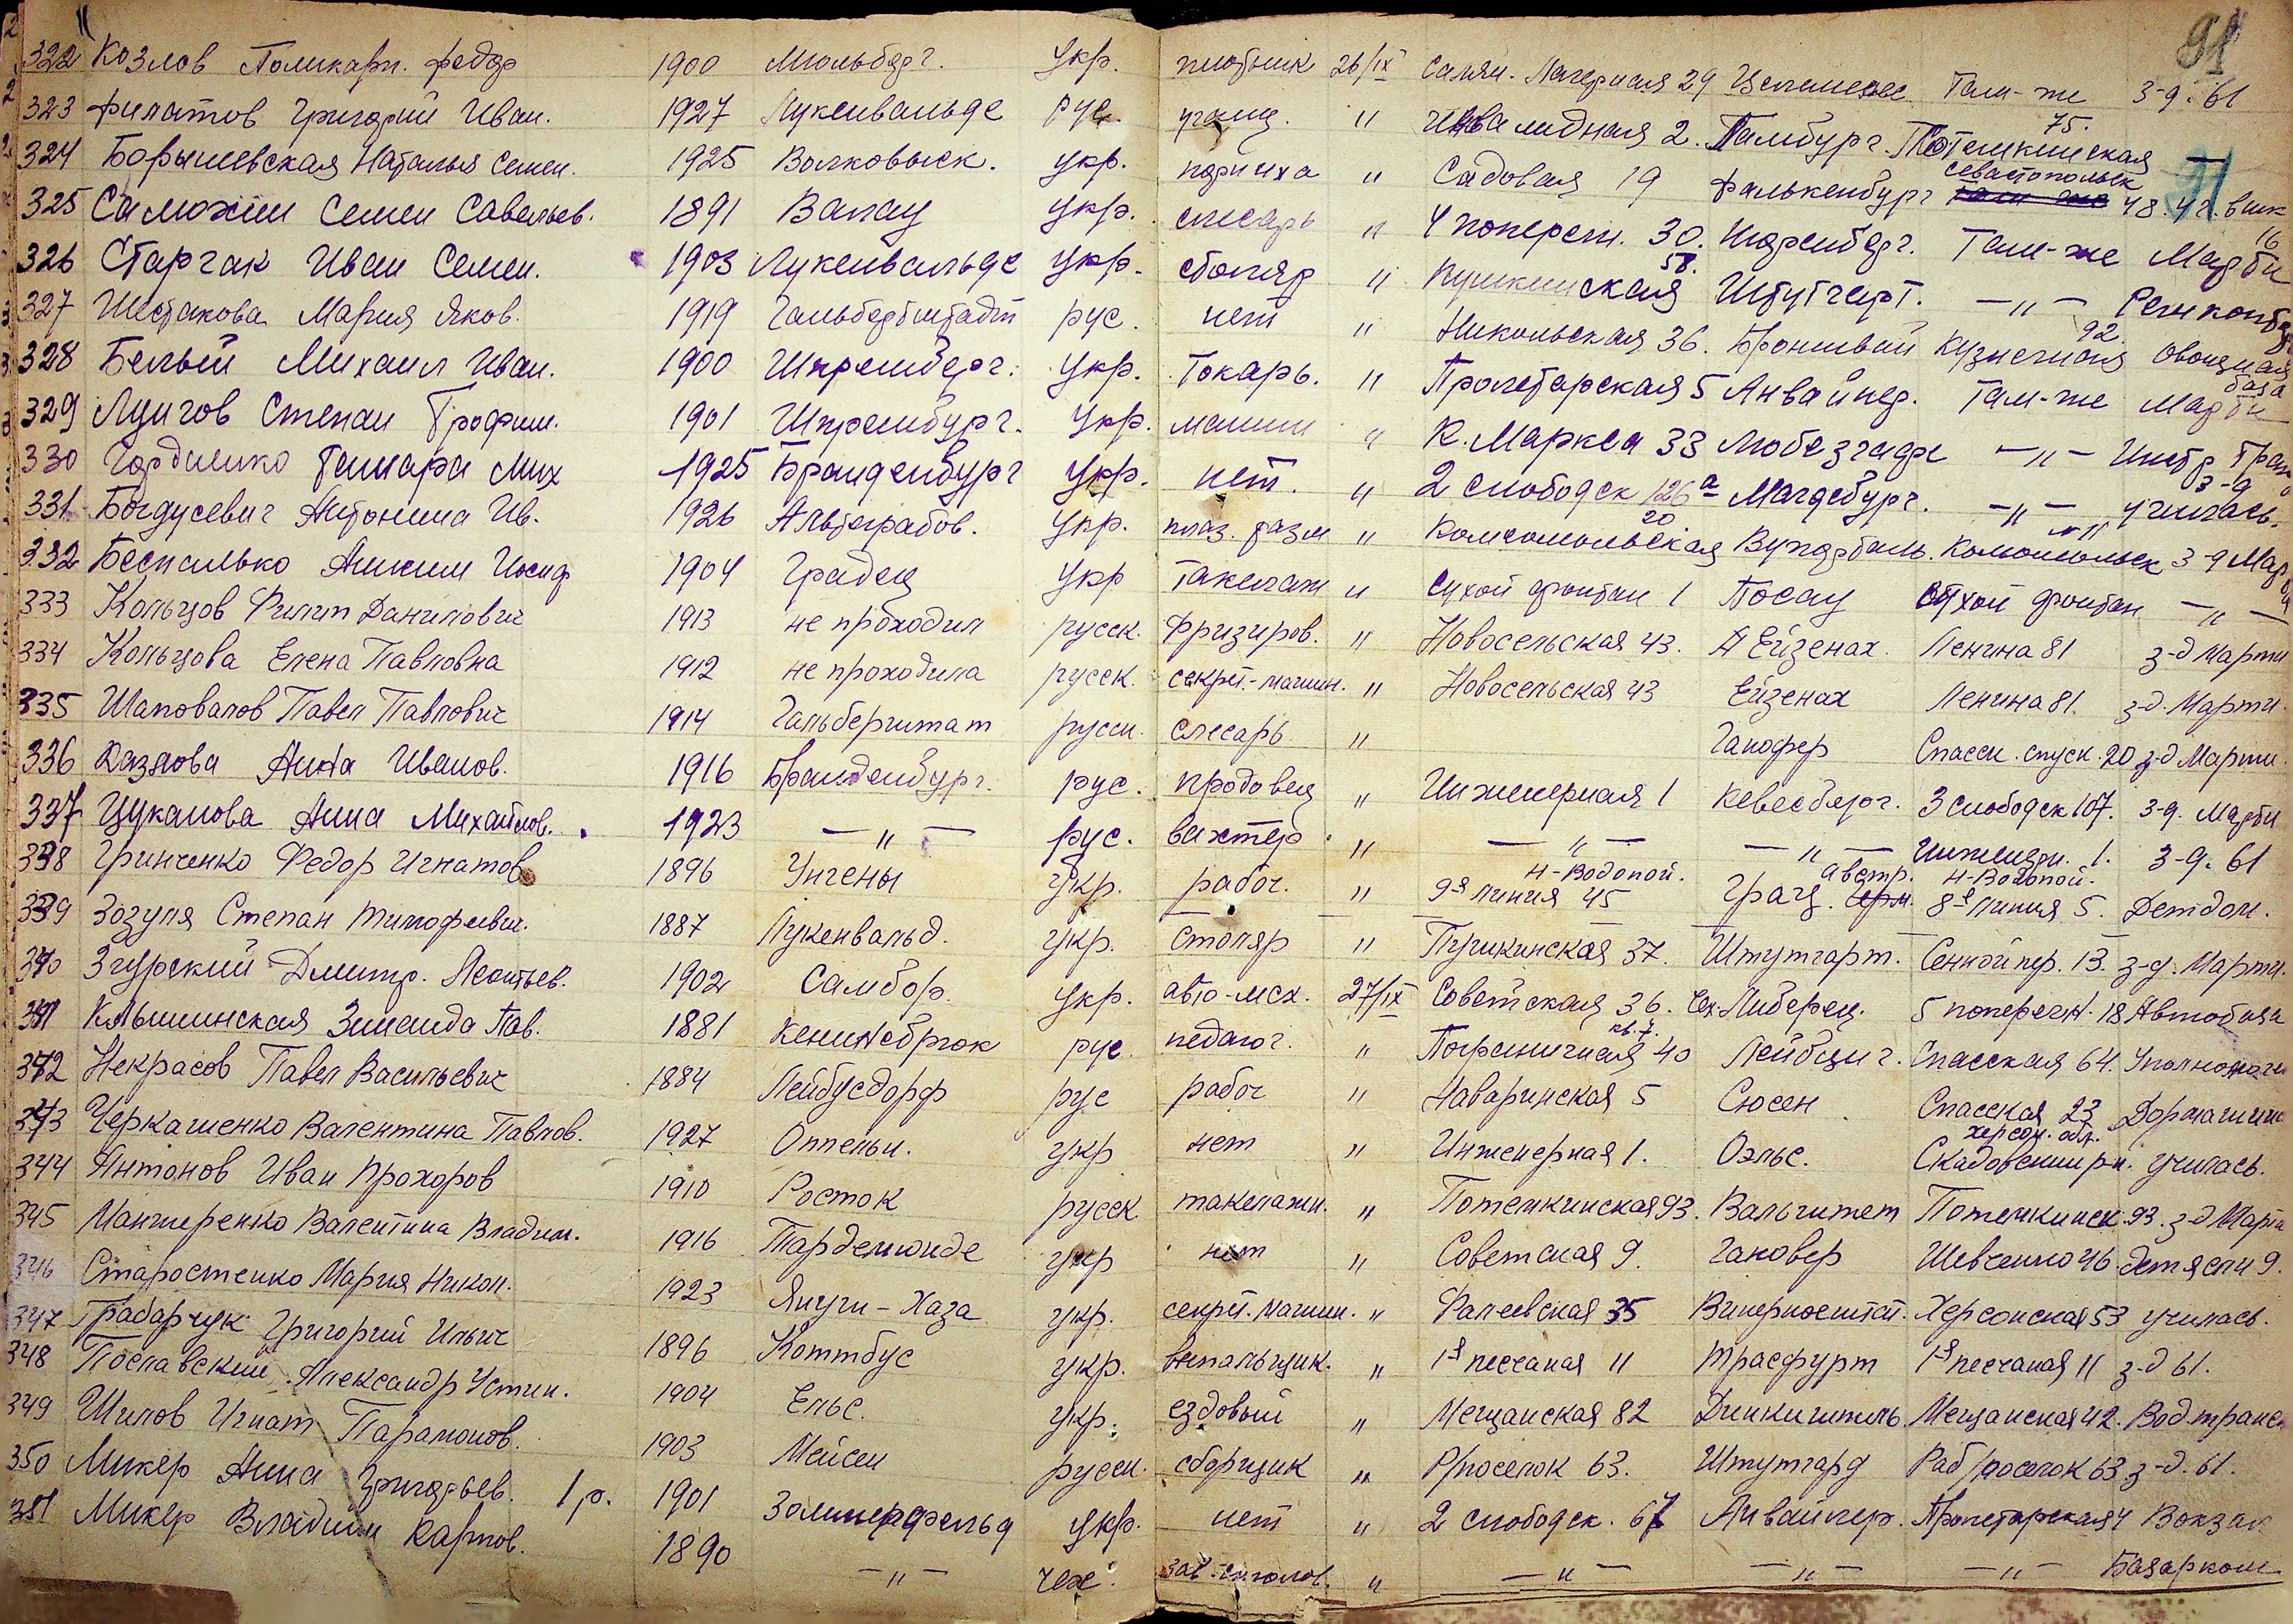 91
322 Козлов Поликарп. Федор 1900 Мюльберг. Укр. плотник 26/IX Салян. Лагерная 29 Там-же 3-д. 61
323 Филатов Григорий Иван. 1927 Лукенвальде рус. учащ. " Инвалидная 2. Гамбург. Потемкинская 75. —
324 Борышевская Наталья Семен. 1925 Волковыск. укр. портниха " Садовая 19 Фалькенбург Севастопольск 48.
325 Самохин Семен Савельев. 1891 Валау укр. слесарь " 4 попереч. 30. Нюренберг. Там-же Марти
326 Старчак Иван Семен. 1903 Лукенвальде укр. столяр " Пушкинская 58. Штутгарт. — " —
327 Шестакова Мария Яков. 1919 Гальберштадт рус. нет " Никольская 36. Кузнечная 92. Овощная база
328 Белый Михаил Иван. 1900 Шпремберг. Укр. Токарь. " Пролетарская 5 Анвайлер. Там-же Марти
329 Лунгов Степан Трофим. 1901 Шпрембург. Укр. машин " К. Маркса 33 — " —
330 Гордиенко Тамара Мих 1925 Бранденбург Укр. нет. " 2 слободск 126а Магдебург. — " — училась.
331 Богдусевич Антонина Ив. 1926 Альтграбов. Укр. " Комсомольская 20. Вупперталь. Комсомольск 3-д Марти
332 Беспалько Аким Иосиф 1904 Градец Укр такелаж " Сухой фонтан 1 Посау Сухой фонтан — " —
333 Кольцов Филипп Данилович 1913 не проходил русск. Фризиров. " Новосельская 43. Ейзенах. Ленина 81 з-д Марти
334 Кольцова Елена Павловна 1912 не проходила русск. секрет.-машин. " Новосельская 43 Ейзенах Ленина 81. з-д. Марти.
335 Шаповалов Павел Павлович 1914 Гальберштат русск. слесарь " Ганофер Спасск. спуск. 20 з-д Марти.
336 Казлова Анна Иванов. 1916 Бранденбург. рус. продовец " Инженерная 1 Кевесберг. 3 слободск 107. 3-д. Марти
337 Цуканова Анна Михайлов. 1923 — " — рус. вахтер " — " — — " — Инженерн. 1. 3-д. 61
338 Гринченко Федор Игнатов 1896 Унгены укр. рабоч. " Н-Водопой. 9я линия 45 Грац. австр. Н-Водопой. 8я линия 5. Детдом.
339 Зозуля Степан Тимофеевич. 1887 Лукенвальд. укр. столяр " Пушкинская 37. Штутгарт. Сенной пер. 13. з-д. Марти.
340 Згурский Дмитр. Леонтьев. 1902 Самбор. укр. авто-мех. 27/IX Советская 36. Чех. Либерец. 5 попереч. 18 Автобаза
341 Клышинская Зинаида Пав. 1881 рус. педагог. " Пограничная 40 кв. 7. Лейбциг. Спасская 64.
342 Некрасов Павел Васильевич 1884 Лейбусдорф рус рабоч " Наваринская 5 Сюсен Спасская 23 Дормашина
343 Черкашенко Валентина Павлов. 1927 Оппельн. укр нет " Инженерная 1. Оэльс. херсон. обл. Скадовский р-н. училась.
344 Антонов Иван Прохоров 1910 Росток русск такелажн. " Потемкинская 93. Вальгитет Потемкинск 93. з-д Марти
345 Манжеренко Валентина Владим. 1916 Тардемюнде укр нет " Советская 9. Гановер Шевченко 46. Детясли 9.
346 Старостенко Мария Никол. 1923 Януги-Хаза укр. секрет. машин. " Фалеевская 35 Херсонская 53 училась.
347 Грабарчук Григорий Ильич 1896 Коттбус укр. " 1я песчаная 11 Трасфурт 1я песчаная 11 з-д 61.
348 Пославский Александр Устин. 1904 Ельс. укр. ездовый " Мещанская 82 Мещанская 42. Вод. транс
349 Шилов Игнат Парамонов. 1903 Мейсен русск. сборщик " Р/поселок 63. Штутгард Раб/поселок 63 з-д. 61.
350 Микер Анна Григорьев. 1 р. 1901 Золимерфельд укр. нет " 2 слободск. 67 Анвайлер. Пролетарская 4 Вокзал
351 Микер Владим Карлов. 1890 — " — чех. зав. столов. " — " — — " — — " — Базарком